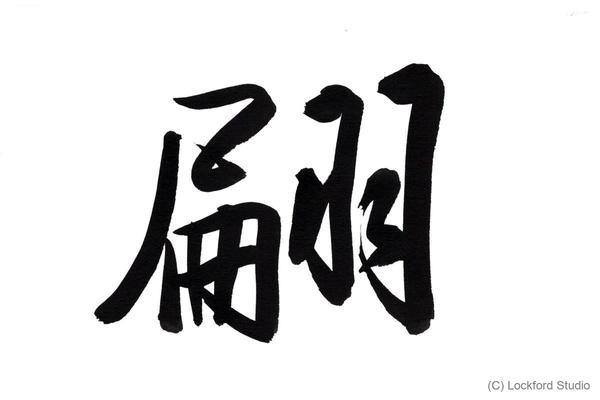 翩
(C) Lockford Studio